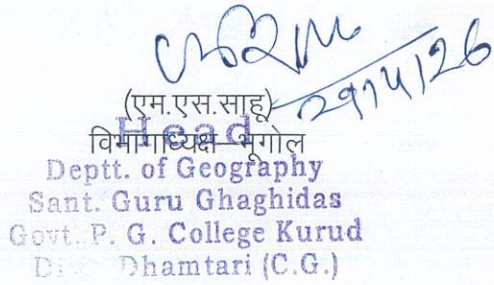 29/4/26
(एम.एस.साहू)
Head
विभागाध्यक्ष–भूगोल
Deptt. of Geography
Sant. Guru Ghaghidas
Govt. P. G. College Kurud
Dhamtari (C.G.)